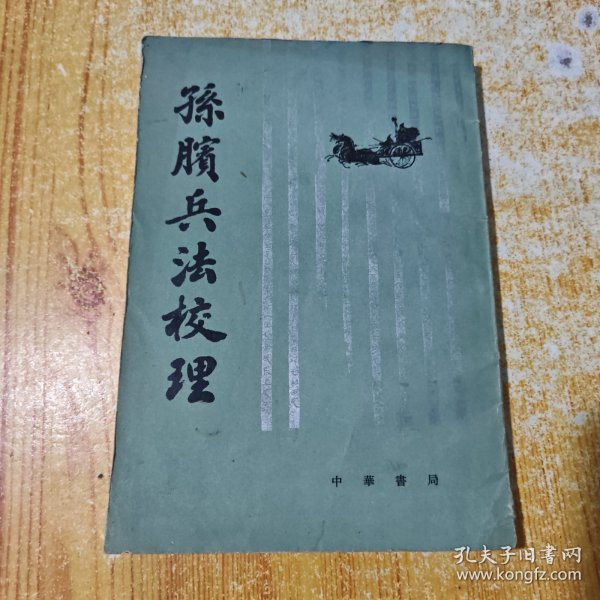 孫臏兵法校理
中華書局
孔夫子旧書网
www.kongfz.com